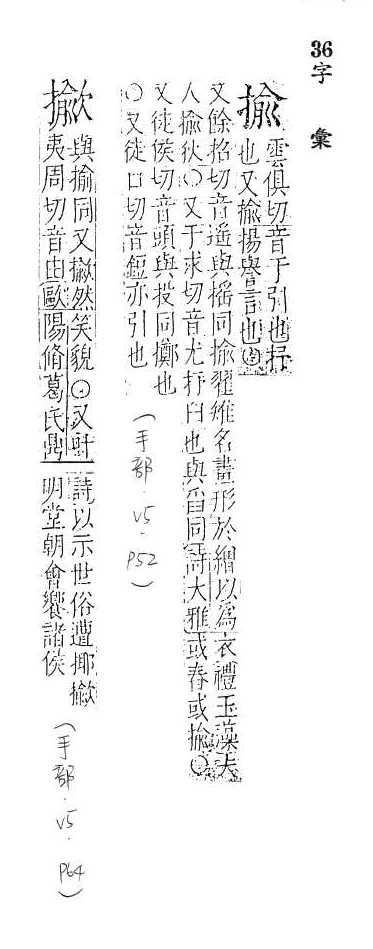 36字彙
揄 雲俱切音于引也抒
也又揄揚譽言也○
又餘招切音遥與榣同揄翟雉名畫形於繒以為衣禮玉藻夫
人揄狄○又于求切音尤抒臼也與舀同詩大雅或舂或揄○
又徒侯切音頭與投同擲也
○又徒口切音鋀亦引也
(手部.V5.P52)
揄欠 與揄同又撖然笑貌○又
夷周切音由歐陽脩葛氏鼎
詩以示世俗遭揶
明堂朝會饗諸侯
(手部.V5.P64)